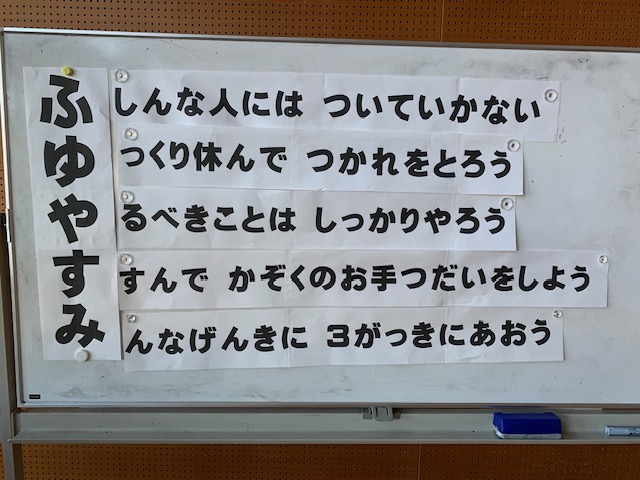 ふゆやすみ
しんな人には ついていかない
つくり休んで つかれをとろう
るべきことは しっかりやろう
すんで かぞくのお手つだいをしよう
んなげんきに 3がっきにあおう